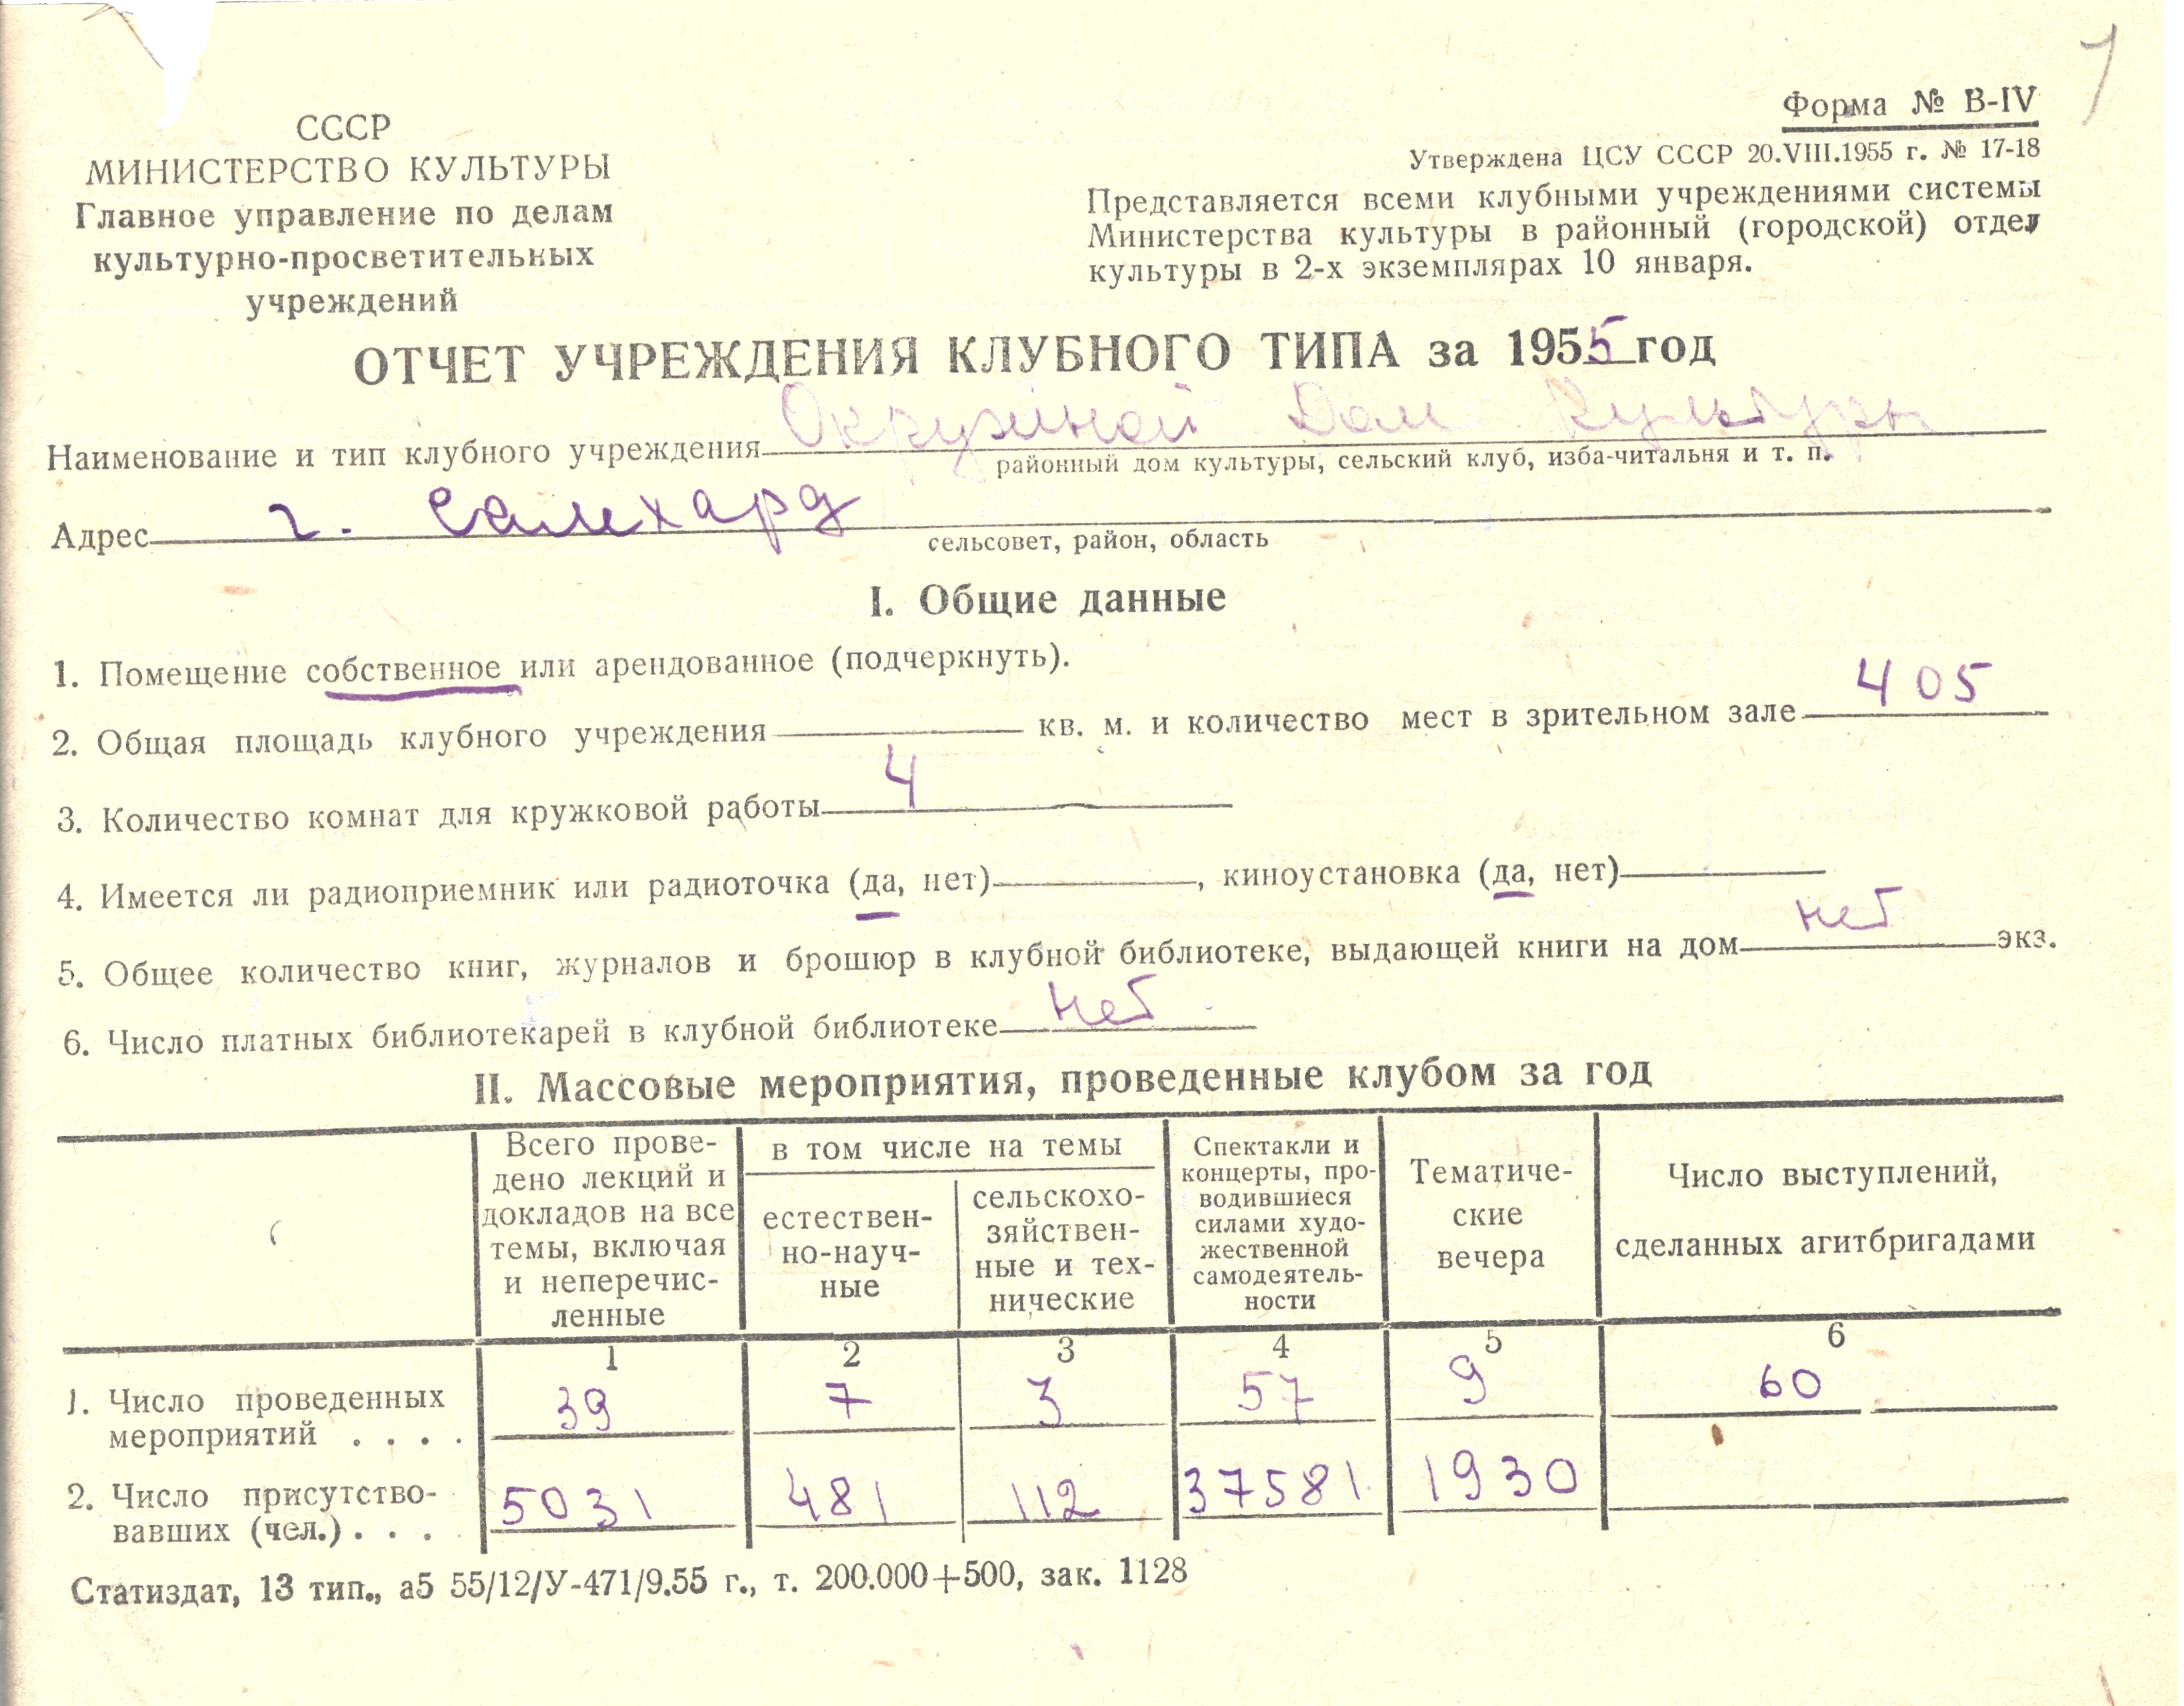 1
СССР
МИНИСТЕРСТВО КУЛЬТУРЫ
Главное управление по делам
культурно-просветительных
учреждений
Форма № В-IV
Утверждена ЦСУ СССР 20.VIII.1955 г. № 17-18
Представляется всеми клубными учреждениями системы
Министерства культуры в районный (городской) отдел
культуры в 2-х экземплярах 10 января.
ОТЧЕТ УЧРЕЖДЕНИЯ КЛУБНОГО ТИПА за 1955 год
Наименование и тип клубного учреждения Окружной Дом Культуры
районный дом культуры, сельский клуб, изба-читальня и т. п.
Адрес г. Салехард
сельсовет, район, область
I. Общие данные
1. Помещение собственное или арендованное (подчеркнуть).
2. Общая площадь клубного учреждения кв. м. и количество мест в зрительном зале 405
3. Количество комнат для кружковой работы 4
4. Имеется ли радиоприемник или радиоточка (да, нет) , киноустановка (да, нет)
5. Общее количество книг, журналов и брошюр в клубной библиотеке, выдающей книги на дом нет экз.
6. Число платных библиотекарей в клубной библиотеке нет
II. Массовые мероприятия, проведенные клубом за год
Всего прове-
дено лекций и
докладов на все
темы, включая
и неперечис-
ленные
в том числе на темы
естествен-
но-науч-
ные
сельскохо-
зяйствен-
ные и тех-
нические
Спектакли и
концерты, про-
водившиеся
силами худо-
жественной
самодеятель-
ности
Тематиче-
ские
вечера
Число выступлений,
сделанных агитбригадами
1 2 3 4 5 6
1. Число проведенных
мероприятий . . . .
39 7 3 57 9 60
2. Число присутство-
вавших (чел.) . . .
5031 481 112 37581 1930
Статиздат, 13 тип., а5 55/12/У-471/9.55 г., т. 200.000+500, зак. 1128